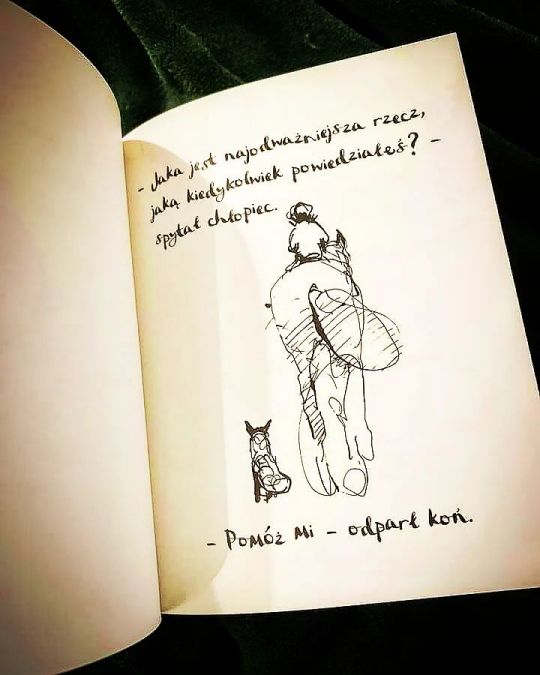 - Jaka jest najodważniejsza rzecz,
jaką kiedykolwiek powiedziałeś? -
spytał chłopiec.
- Pomóż mi - odparł koń.